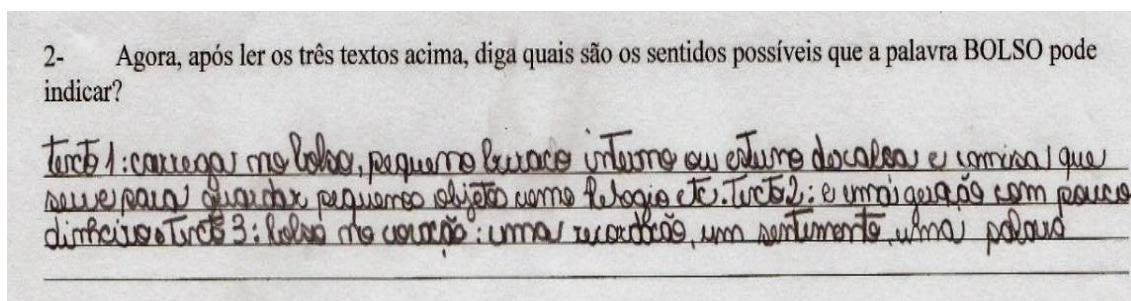 2- Agora, após ler os três textos acima, diga quais são os sentidos possíveis que a palavra BOLSO pode
indicar?
texto 1: carregar no bolso, pequeno buraco interno ou esturno da calsa e camisa que
serve para guardar pequenos objeto como Relogio etc. Texto 2: e uma com pouco
dinheiro Texto 3: bolso no coração: uma recordacão, um sentimento, uma palavra